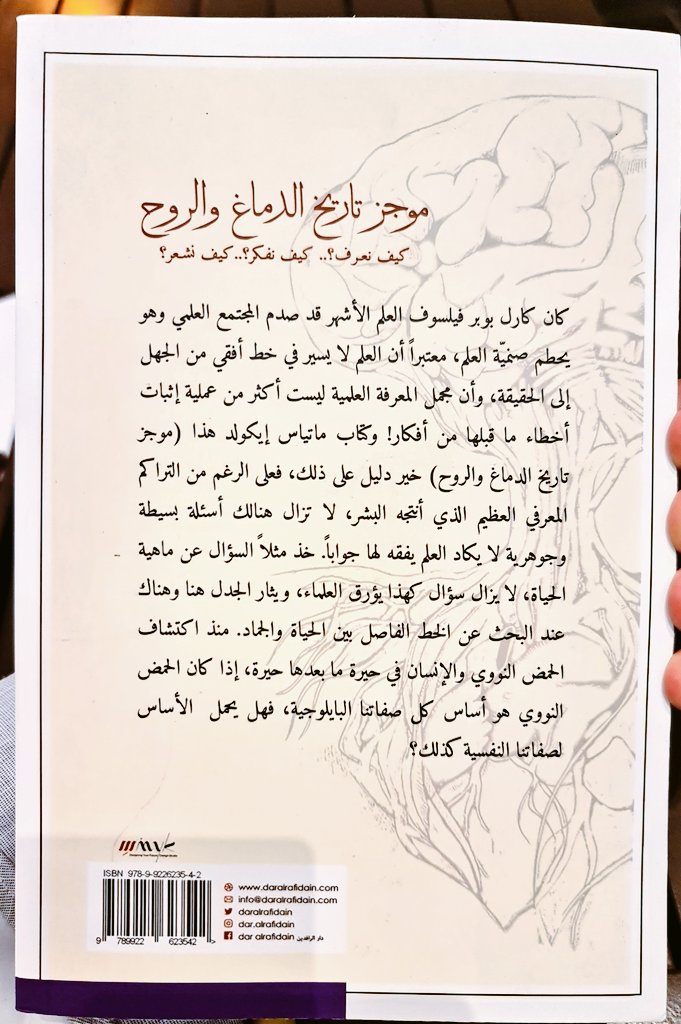 موجز تاريخ الدماغ والروح
كيف نعرف؟.. كيف نفكر؟..كيف نشعر؟
كان كارل بوبر فيلسوف العلم الأشهر قد صدم المجتمع العلمي وهو
يحطم صنميّة العلم، معتبراً أن العلم لا يسير في خط أفقي من الجهل
إلى الحقيقة، وأن مجمل المعرفة العلمية ليست أكثر من عملية إثبات
أخطاء ما قبلها من أفكار! وكتاب ماتياس إيكولد هذا (موجز
تاريخ الدماغ والروح) خير دليل على ذلك، فعلى الرغم من التراكم
المعرفي العظيم الذي أنتجه البشر، لا تزال هنالك أسئلة بسيطة
وجوهرية لا يكاد العلم يفقه لها جواباً. خذ مثلاً السؤال عن ماهية
الحياة، لا يزال سؤال كهذا يؤرق العلماء، ويثار الجدل هنا وهناك
عند البحث عن الخط الفاصل بين الحياة والجماد. منذ اكتشاف
الحمض النووي والإنسان في حيرة ما بعدها حيرة، إذا كان الحمض
النووي هو أساس كل صفاتنا البايلوجية، فهل يحمل الأساس
لصفاتنا النفسية كذلك؟
ISBN 978-9-9226235-4-2
9 789922 623542 >
www.daralrafidain.com
info@daralrafidain.com
daralrafidain
dar.alrafidain
dar alrafidain دار الرافدين